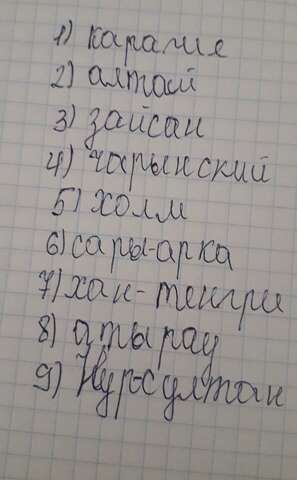 1) карагие
2) алтай
3) зайсан
4) чарынский
5) холм
6) сары-арка
7) хан-тенгри
8) атырау
9) Нур-султан